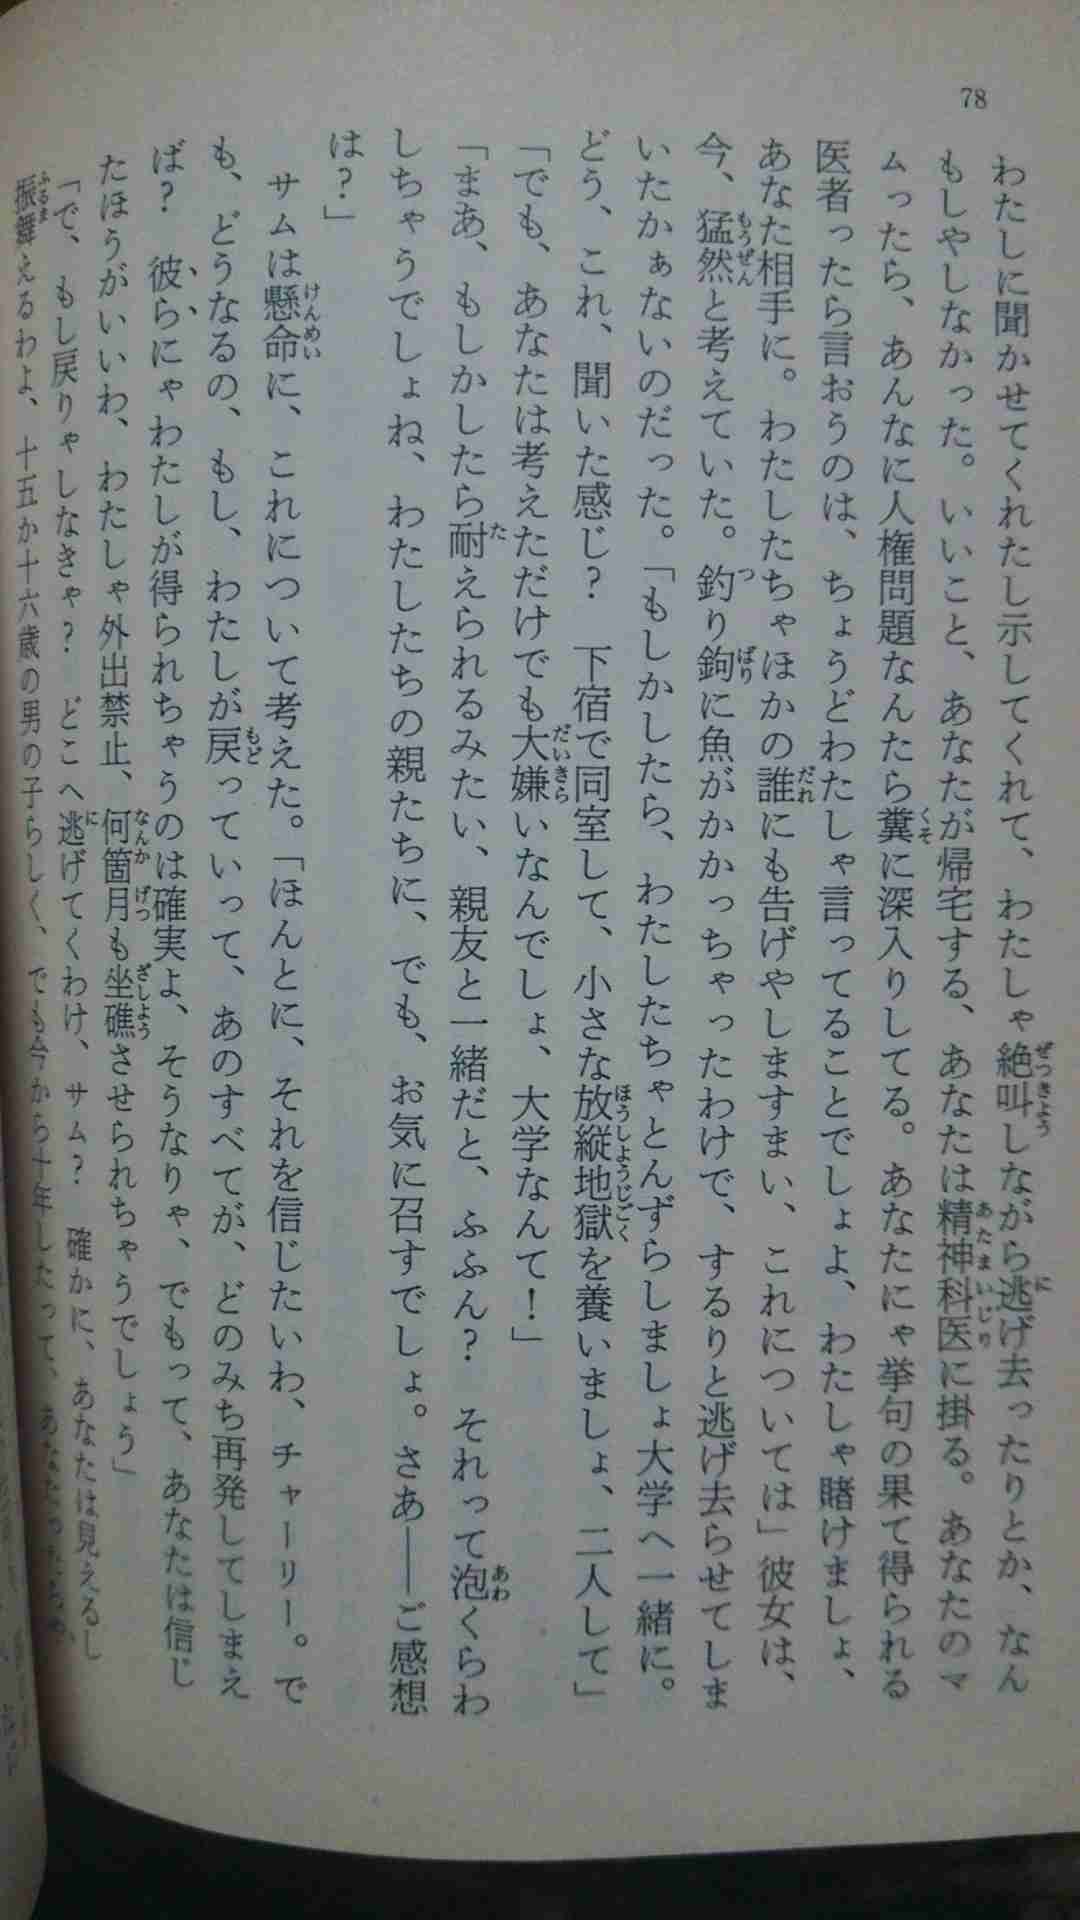 78
わたしに聞かせてくれたし示してくれて、わたしゃ絶叫しながら逃げ去ったりとか、なん
もしやしなかった。いいこと、あなたが帰宅する、あなたは精神科医に掛る。あなたのマ
ムったら、あんなに人権問題なんたら糞に深入りしてる。あなたにゃ挙句の果て得られる
医者ったら言おうのは、ちょうどわたしゃ言ってることでしょよ、わたしゃ賭けましょ、
あなた相手に。わたしたちゃほかの誰にも告げやしますまい、これについては」彼女は、
今、猛然と考えていた。釣り鉤に魚がかかっちゃったわけで、するりと逃げ去らせてしま
いたかぁないのだった。「もしかしたら、わたしたちゃとんずらしましょ大学へ一緒に。
どう、これ、聞いた感じ？　下宿で同室して、小さな放縦地獄を養いましょ、二人して」
「でも、あなたは考えただけでも大嫌いなんでしょ、大学なんて！」
「まあ、もしかしたら耐えられるみたい、親友と一緒だと、ふふん？　それって泡くらわ
しちゃうでしょね、わたしたちの親たちに、でも、お気に召すでしょ。さあ――ご感想
は？」
サムは懸命に、これについて考えた。「ほんとに、それを信じたいわ、チャーリー。で
も、どうなるの、もし、わたしが戻っていって、あのすべてが、どのみち再発してしまえ
ば？　彼らにゃわたしが得られちゃうのは確実よ、そうなりゃ、でもって、あなたは信じ
たほうがいいわ、わたしゃ外出禁止、何箇月も坐礁させられちゃうでしょう」
「で、もし戻りゃしなきゃ？　どこへ逃げてくわけ、サム？　確かに、あなたは見えるし
振舞えるわよ、十五か十六歳の男の子らしく、でも今から十年したって、